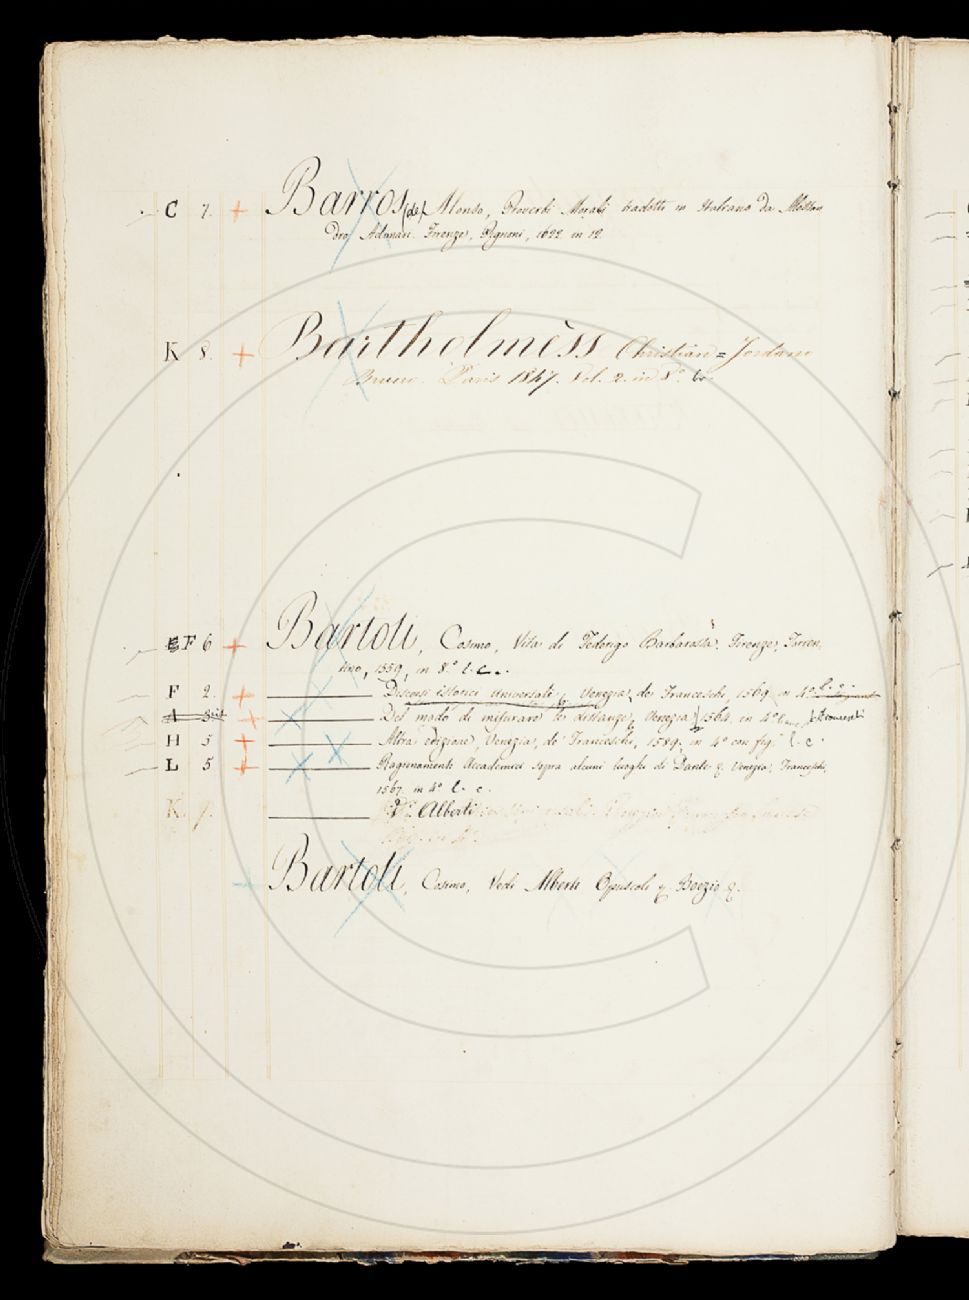 C 7. + Barros (de) Alonso, Proverbi Morali tradotti in Italiano da Alessan
dro Adimari. Firenze, Pignoni, 1622 in 12
K 8. + Bartholmèss Christian = Jordano
Bruno. Paris 1847. Vol. 2. in 8.º
F 6 + Bartoli, Cosimo, Vita di Federigo Barbarossa. Firenze, Torren,
tino, 1559, in 8.º l. c.
F 2. + Discorsi istorici universali, Venezia, de Franceschi, 1569. in 4.º
A + Del modo di misurare le distanze, Venezia, 1564. in 4.º
H 5 + Altra edizione, Venezia, de' Franceschi, 1589. in 4º con fig. l. c.
L 5 + Ragionamenti Accademici sopra alcuni luoghi di Dante &. Venezia, Franceschi,
1567. in 4º l. c.
K. 7. V. Alberti
Bartoli, Cosimo, Vedi Alberti Opuscoli e Boezio &.